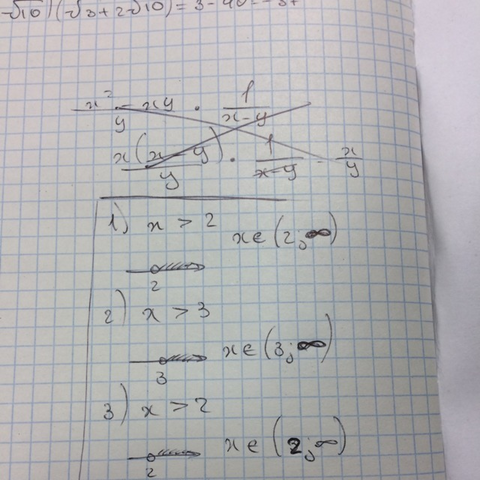 √10)(√3+2√10)=3-40=-37
x²-xy/y · 1/x-y
x(x-y)/y · 1/x-y = x/y
1) x > 2 x∈(2;∞)
2
2) x > 3
3 x∈(3;∞)
3) x > 2
2 x∈(2;∞)